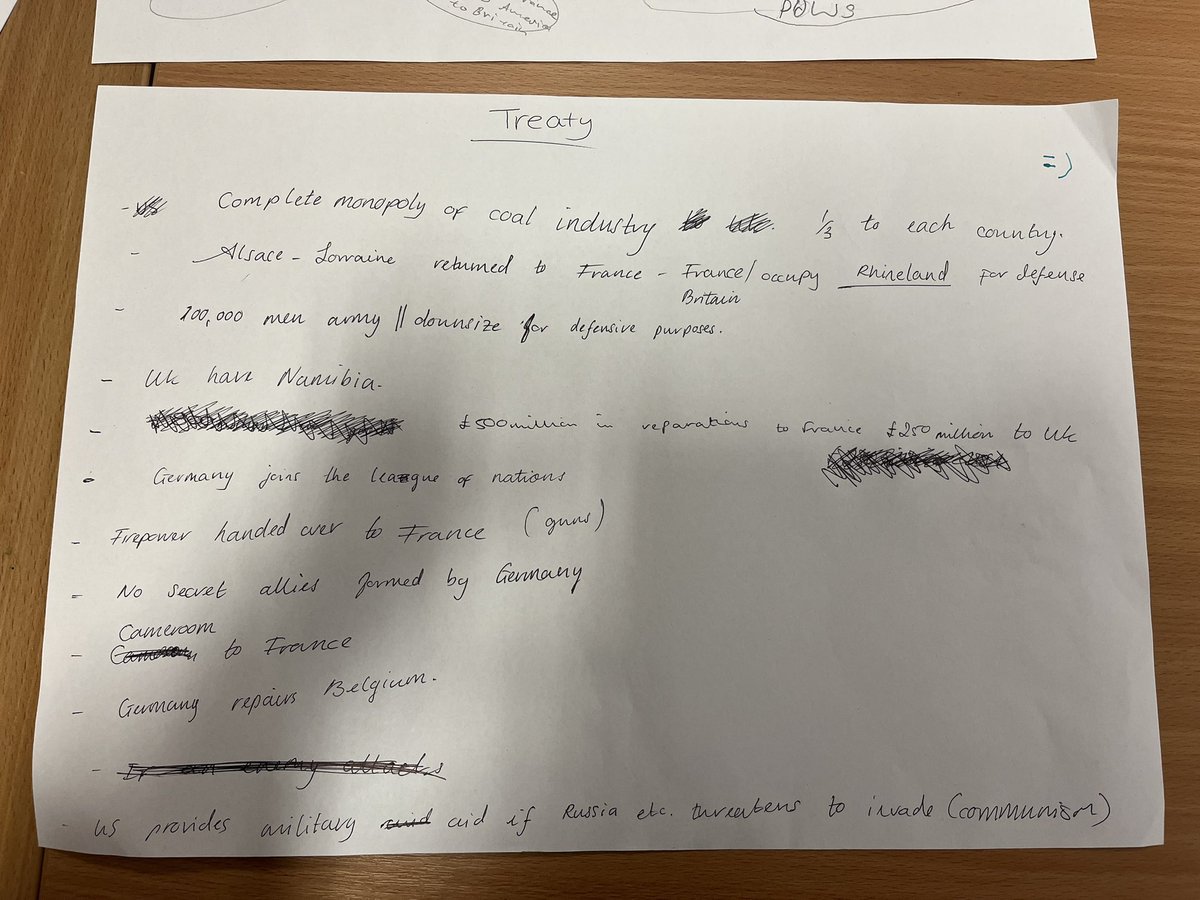 America
to Britain
POWs
Treaty
=)
- Complete monopoly of coal industry 1/3 to each country.
- Alsace - Lorraine returned to France - France/ occupy Rhineland for defense
Britain
- 100,000 men army || downsize for defensive purposes.
- UK have Namibia.
- £500 million in reparations to France £250 million to UK
- Germany joins the league of nations
- Firepower handed over to France (guns)
- No secret allies formed by Germany
Cameroom
- to France
- Germany repairs Belgium.
- If an enemy attacks
- US provides military aid if Russia etc. threatens to invade (communism)